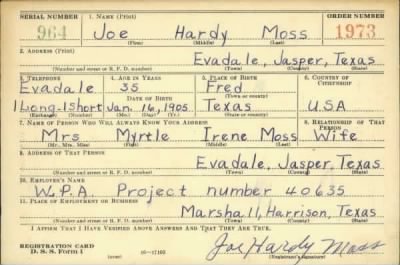 SERIAL NUMBER 1. NAME (Print) ORDER NUMBER
964 Joe Hardy Moss 1973
(First) (Middle) (Last)
2. ADDRESS (Print)
Evadale, Jasper, Texas
(Number and street or R. F. D. number) (Town) (County) (State)
3. TELEPHONE 4. AGE IN YEARS 5. PLACE OF BIRTH 6. COUNTRY OF CITIZENSHIP
Evadale 35 Fred
DATE OF BIRTH (Town or county)
1 Long-1 Short Jan. 16, 1905 Texas USA
(Exchange) (Number) (Mo.) (Day) (Yr.) (State or country)
7. NAME OF PERSON WHO WILL ALWAYS KNOW YOUR ADDRESS 8. RELATIONSHIP OF THAT PERSON
Mrs Myrtle Irene Moss Wife
(Mr., Mrs., Miss) (First) (Middle) (Last)
9. ADDRESS OF THAT PERSON
Evadale, Jasper, Texas
(Number and street or R. F. D. number) (Town) (County) (State)
10. EMPLOYER'S NAME
W.P.A. Project number 40635
11. PLACE OF EMPLOYMENT OR BUSINESS
Marshall, Harrison, Texas
(Number and street or R. F. D. number) (Town) (County) (State)
I AFFIRM THAT I HAVE VERIFIED ABOVE ANSWERS AND THAT THEY ARE TRUE.
REGISTRATION CARD Joe Hardy Moss
D. S. S. Form 1 (over) (Registrant's signature)